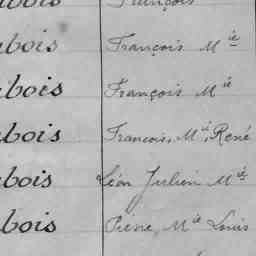 bois François
bois François Mie
bois François Mie
bois François, Mie, René
bois Léon Julien Mie
bois Pierre, Mie Louis